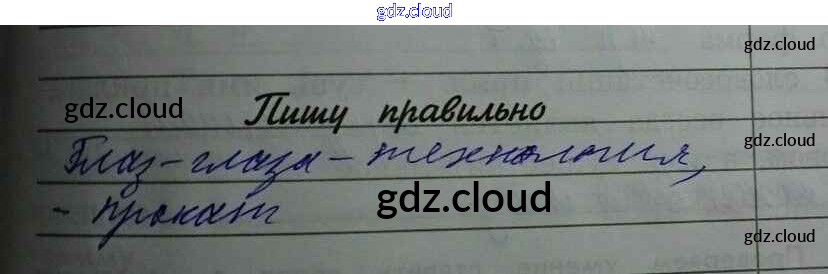 gdz.cloud
gdz.cloud
gdz.cloud
Пишу правильно
Глаз – глаза – технология,
gdz.cloud
– прокат
gdz.cloud
gdz.cloud